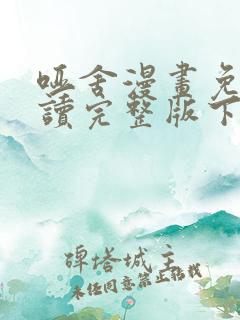 哑舍漫畫免
讀完整版下
碑塔城主
未任同意禁止转载